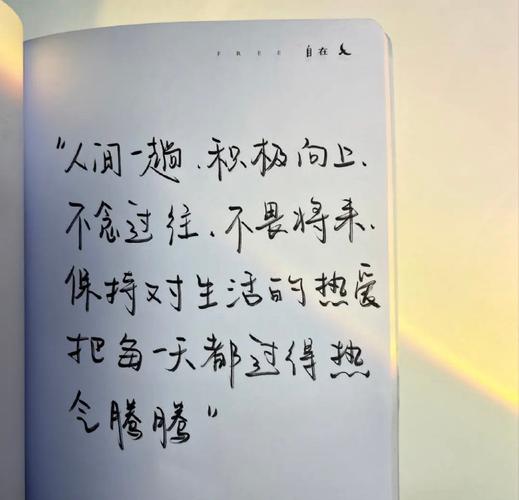 FREE 自在
“人间一趟、积极向上、
不念过往、不畏将来、
保持对生活的热爱
把每一天都过得热
气腾腾”